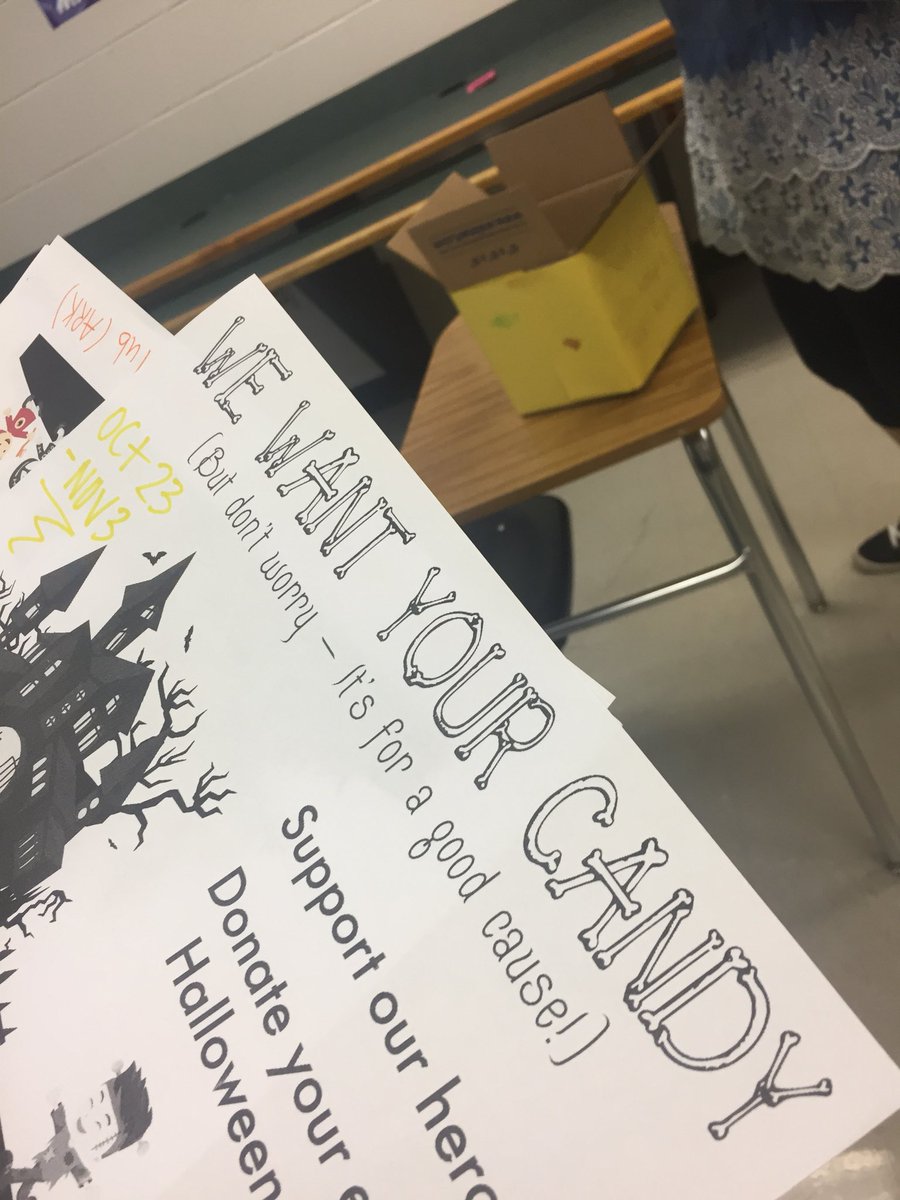 WE WANT YOUR CANDY
(But don't worry – It's for a good cause!)
Support our hero
Donate your e
Halloween
OCT 23
- NOV 3
(ARK)